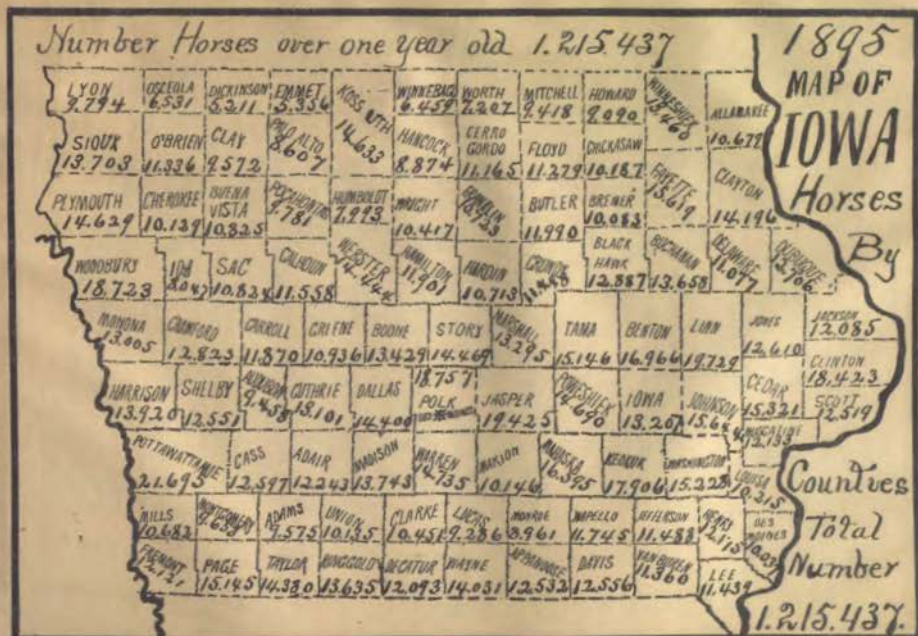 Number Horses over one year old 1.215.437
1895
MAP OF
IOWA
Horses
By
Counties
Total
Number
1.215.437.
LYON
9.794
OSCEOLA
6.531
DICKINSON
5.211
EMMET
5.356
KOSSUTH
14.633
WINNEBAGO
6.459
WORTH
7.207
MITCHELL
9.418
HOWARD
9.090
WINNESHIEK
ALLAMAKEE
10.679
SIOUX
13.703
O'BRIEN
11.336
CLAY
9.572
PALO ALTO
8.607
HANCOCK
8.874
CERRO
GORDO
11.165
FLOYD
11.279
CHICKASAW
10.187
FAYETTE
15.619
CLAYTON
14.196
PLYMOUTH
14.629
CHEROKEE
10.129
BUENA
VISTA
10.825
POCAHONTAS
9.781
HUMBOLDT
7.993
WRIGHT
10.417
FRANKLIN
BUTLER
11.990
BREMER
10.083
WOODBURY
18.723
IDA
8.047
SAC
10.824
CALHOUN
11.558
WEBSTER
14.444
HAMILTON
11.901
HARDIN
10.713
GRUNDY
BLACK
HAWK
12.887
BUCHANAN
13.658
DELAWARE
11.077
DUBUQUE
12.706
MONONA
13.005
CRAWFORD
12.823
CARROLL
11.870
GREENE
10.936
BOONE
13.429
STORY
14.469
MARSHALL
13.295
TAMA
15.146
BENTON
16.966
LINN
19.729
JONES
12.610
JACKSON
12.085
CLINTON
18.423
HARRISON
13.920
SHELBY
12.551
AUDUBON
9.458
GUTHRIE
15.101
DALLAS
14.400
18.757
POLK
JASPER
19.425
POWESHIEK
14.690
IOWA
13.207
JOHNSON
15.644
CEDAR
15.321
SCOTT
12.519
MUSCATINE
12.133
POTTAWATTAMIE
21.695
CASS
12.597
ADAIR
12.243
MADISON
13.743
WARREN
14.735
MARION
10.146
MAHASKA
16.395
KEOKUK
17.906
WASHINGTON
15.228
LOUISA
10.215
MILLS
10.682
MONTGOMERY
ADAMS
9.575
UNION
10.135
CLARKE
10.451
LUCAS
9.286
MONROE
8.961
WAPELLO
11.745
JEFFERSON
11.488
HENRY
DES
MOINES
FREMONT
12.121
PAGE
15.145
TAYLOR
14.380
RINGGOLD
13.635
DECATUR
12.093
WAYNE
14.031
APPANOOSE
12.532
DAVIS
12.556
VAN BUREN
11.360
LEE
11.439